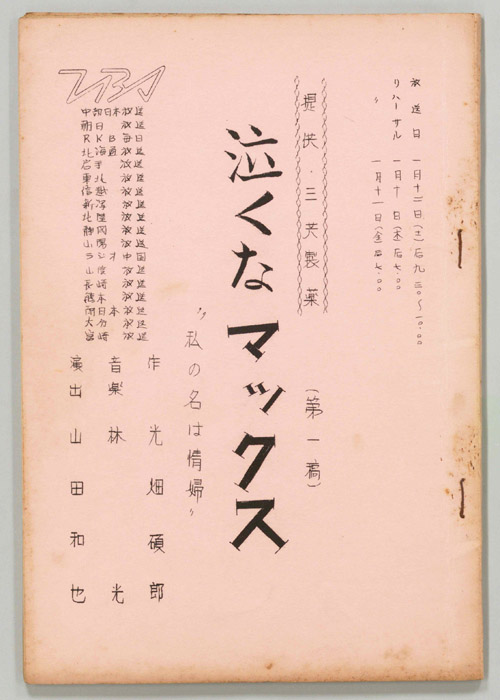 放送日 一月十二日(土)后九.三〇〜一〇.〇〇
リハーサル 一月十日(木)后七.〇〇
〃 一月十一日(金)后七.〇〇
提供・三共製薬
(第一稿)
泣くなマックス
〝私の名は情婦〟
作 光畑碩郎
音楽 林光
演出 山田和也
TBS
中部日本放送
朝日放送
RKB毎日放送
北海道放送
岩手放送
東北放送
信越放送
新潟放送
北陸放送
静岡放送
山陽放送
ラジオ中国
長崎放送
熊本放送
南日本放送
大分放送
宮崎放送